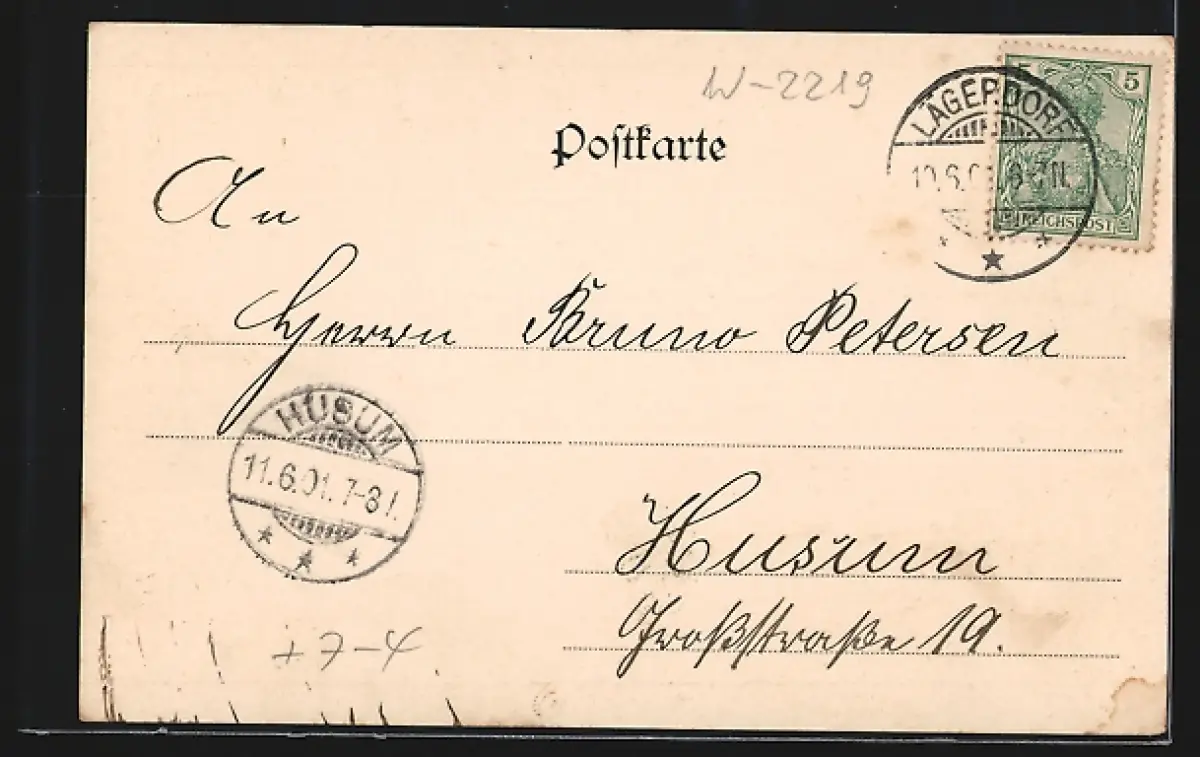 W-2219
Postkarte
5 5
LÄGERDORF
10.6.01. 6-7N.
REICHSPOST
An
Herrn Bruno Petersen
HUSUM
11.6.01. 7-8
Husum
Großstraße 19.
+7-4